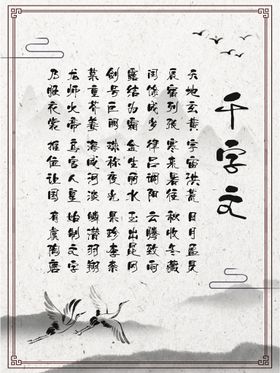 千字文
天地玄黄宇宙洪荒日月盈昃
辰宿列张寒来暑往秋收冬藏
闰馀成岁律吕调阳云腾致雨
露结为霜金生丽水玉出昆冈
剑号巨阙珠称夜光果珍李柰
菜重芥姜海咸河淡鳞潜羽翔
龙师火帝鸟官人皇始制文字
乃服衣裳推位让国有虞陶唐